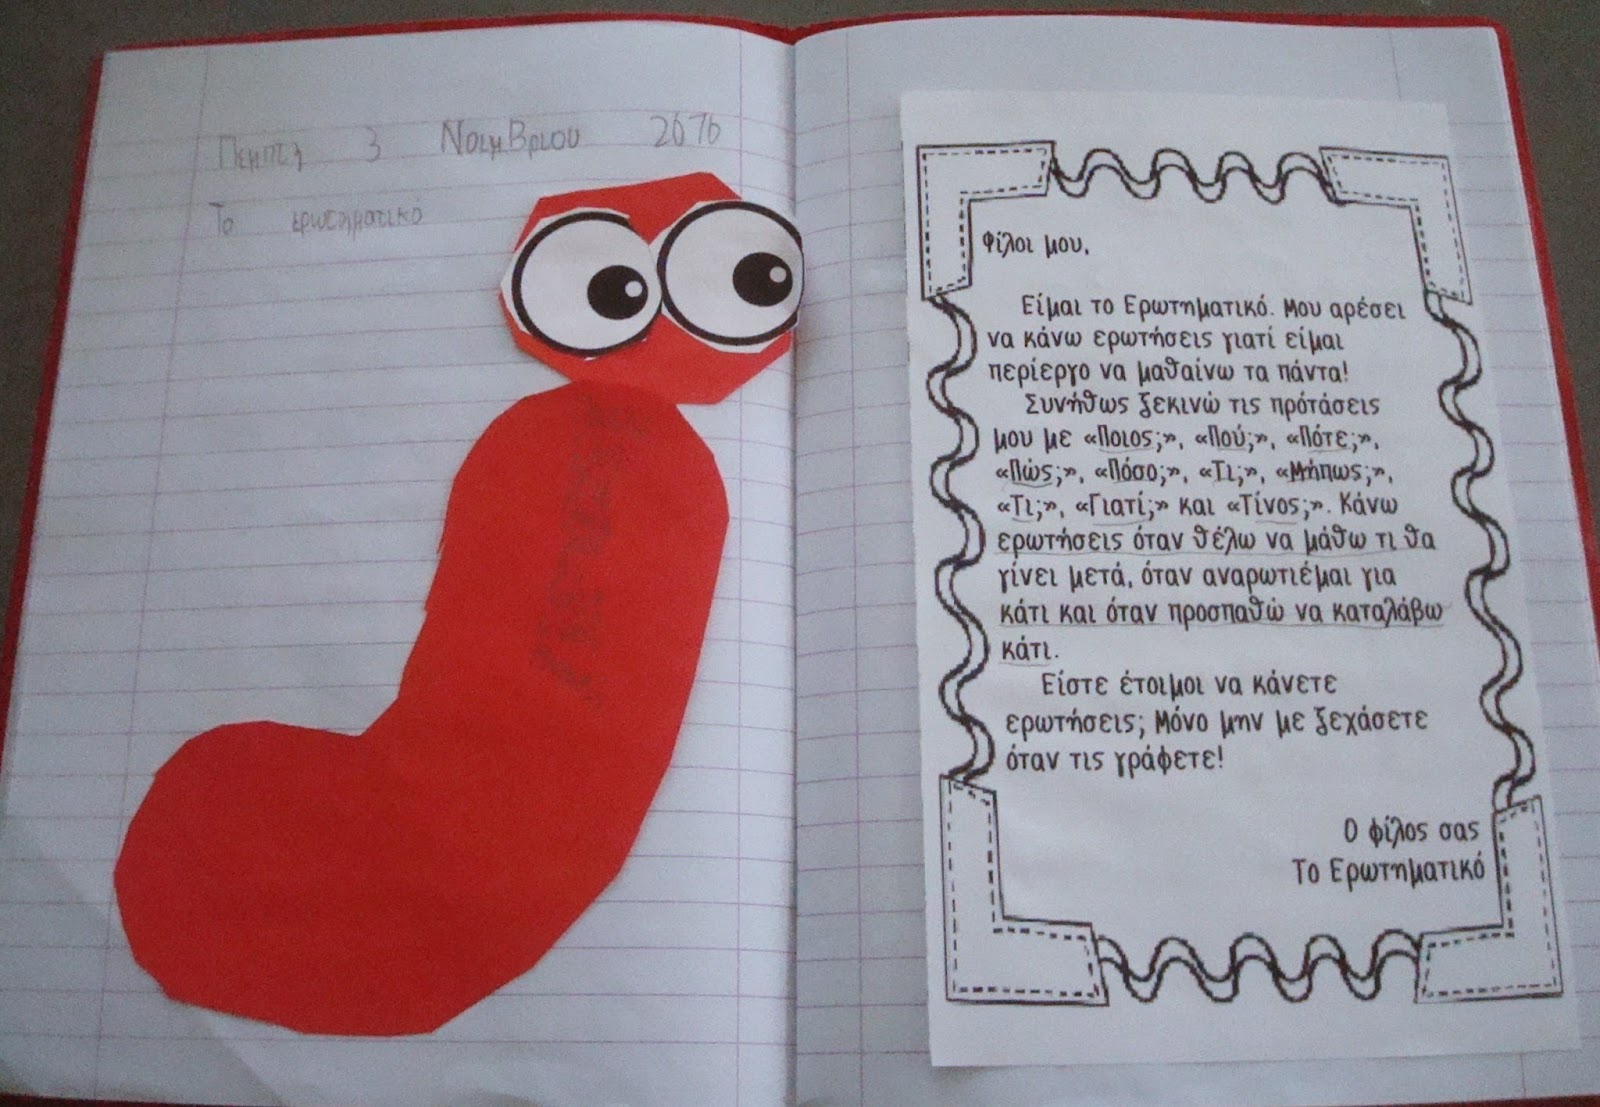 Πεμπτη 3 Νοεμβριου 2016
Το ερωτηματικό
Φίλοι μου,
Είμαι το Ερωτηματικό. Μου αρέσει
να κάνω ερωτήσεις γιατί είμαι
περίεργο να μαθαίνω τα πάντα!
Συνήθως ξεκινώ τις πρότάσεις
μου με «Ποιος;», «Πού;», «Πότε;»,
«Πώς;», «Πόσο;», «Τι;», «Μήπως;»,
«Τι;», «Γιατί;» και «Τίνος;». Κάνω
ερωτήσεις όταν θέλω να μάθω τι θα
γίνει μετά, όταν αναρωτιέμαι για
κάτι και όταν προσπαθώ να καταλάβω
κάτι.
Είστε έτοιμοι να κάνετε
ερωτήσεις; Μόνο μην με ξεχάσετε
όταν τις γράφετε!
Ο φίλος σας
Το Ερωτηματικό